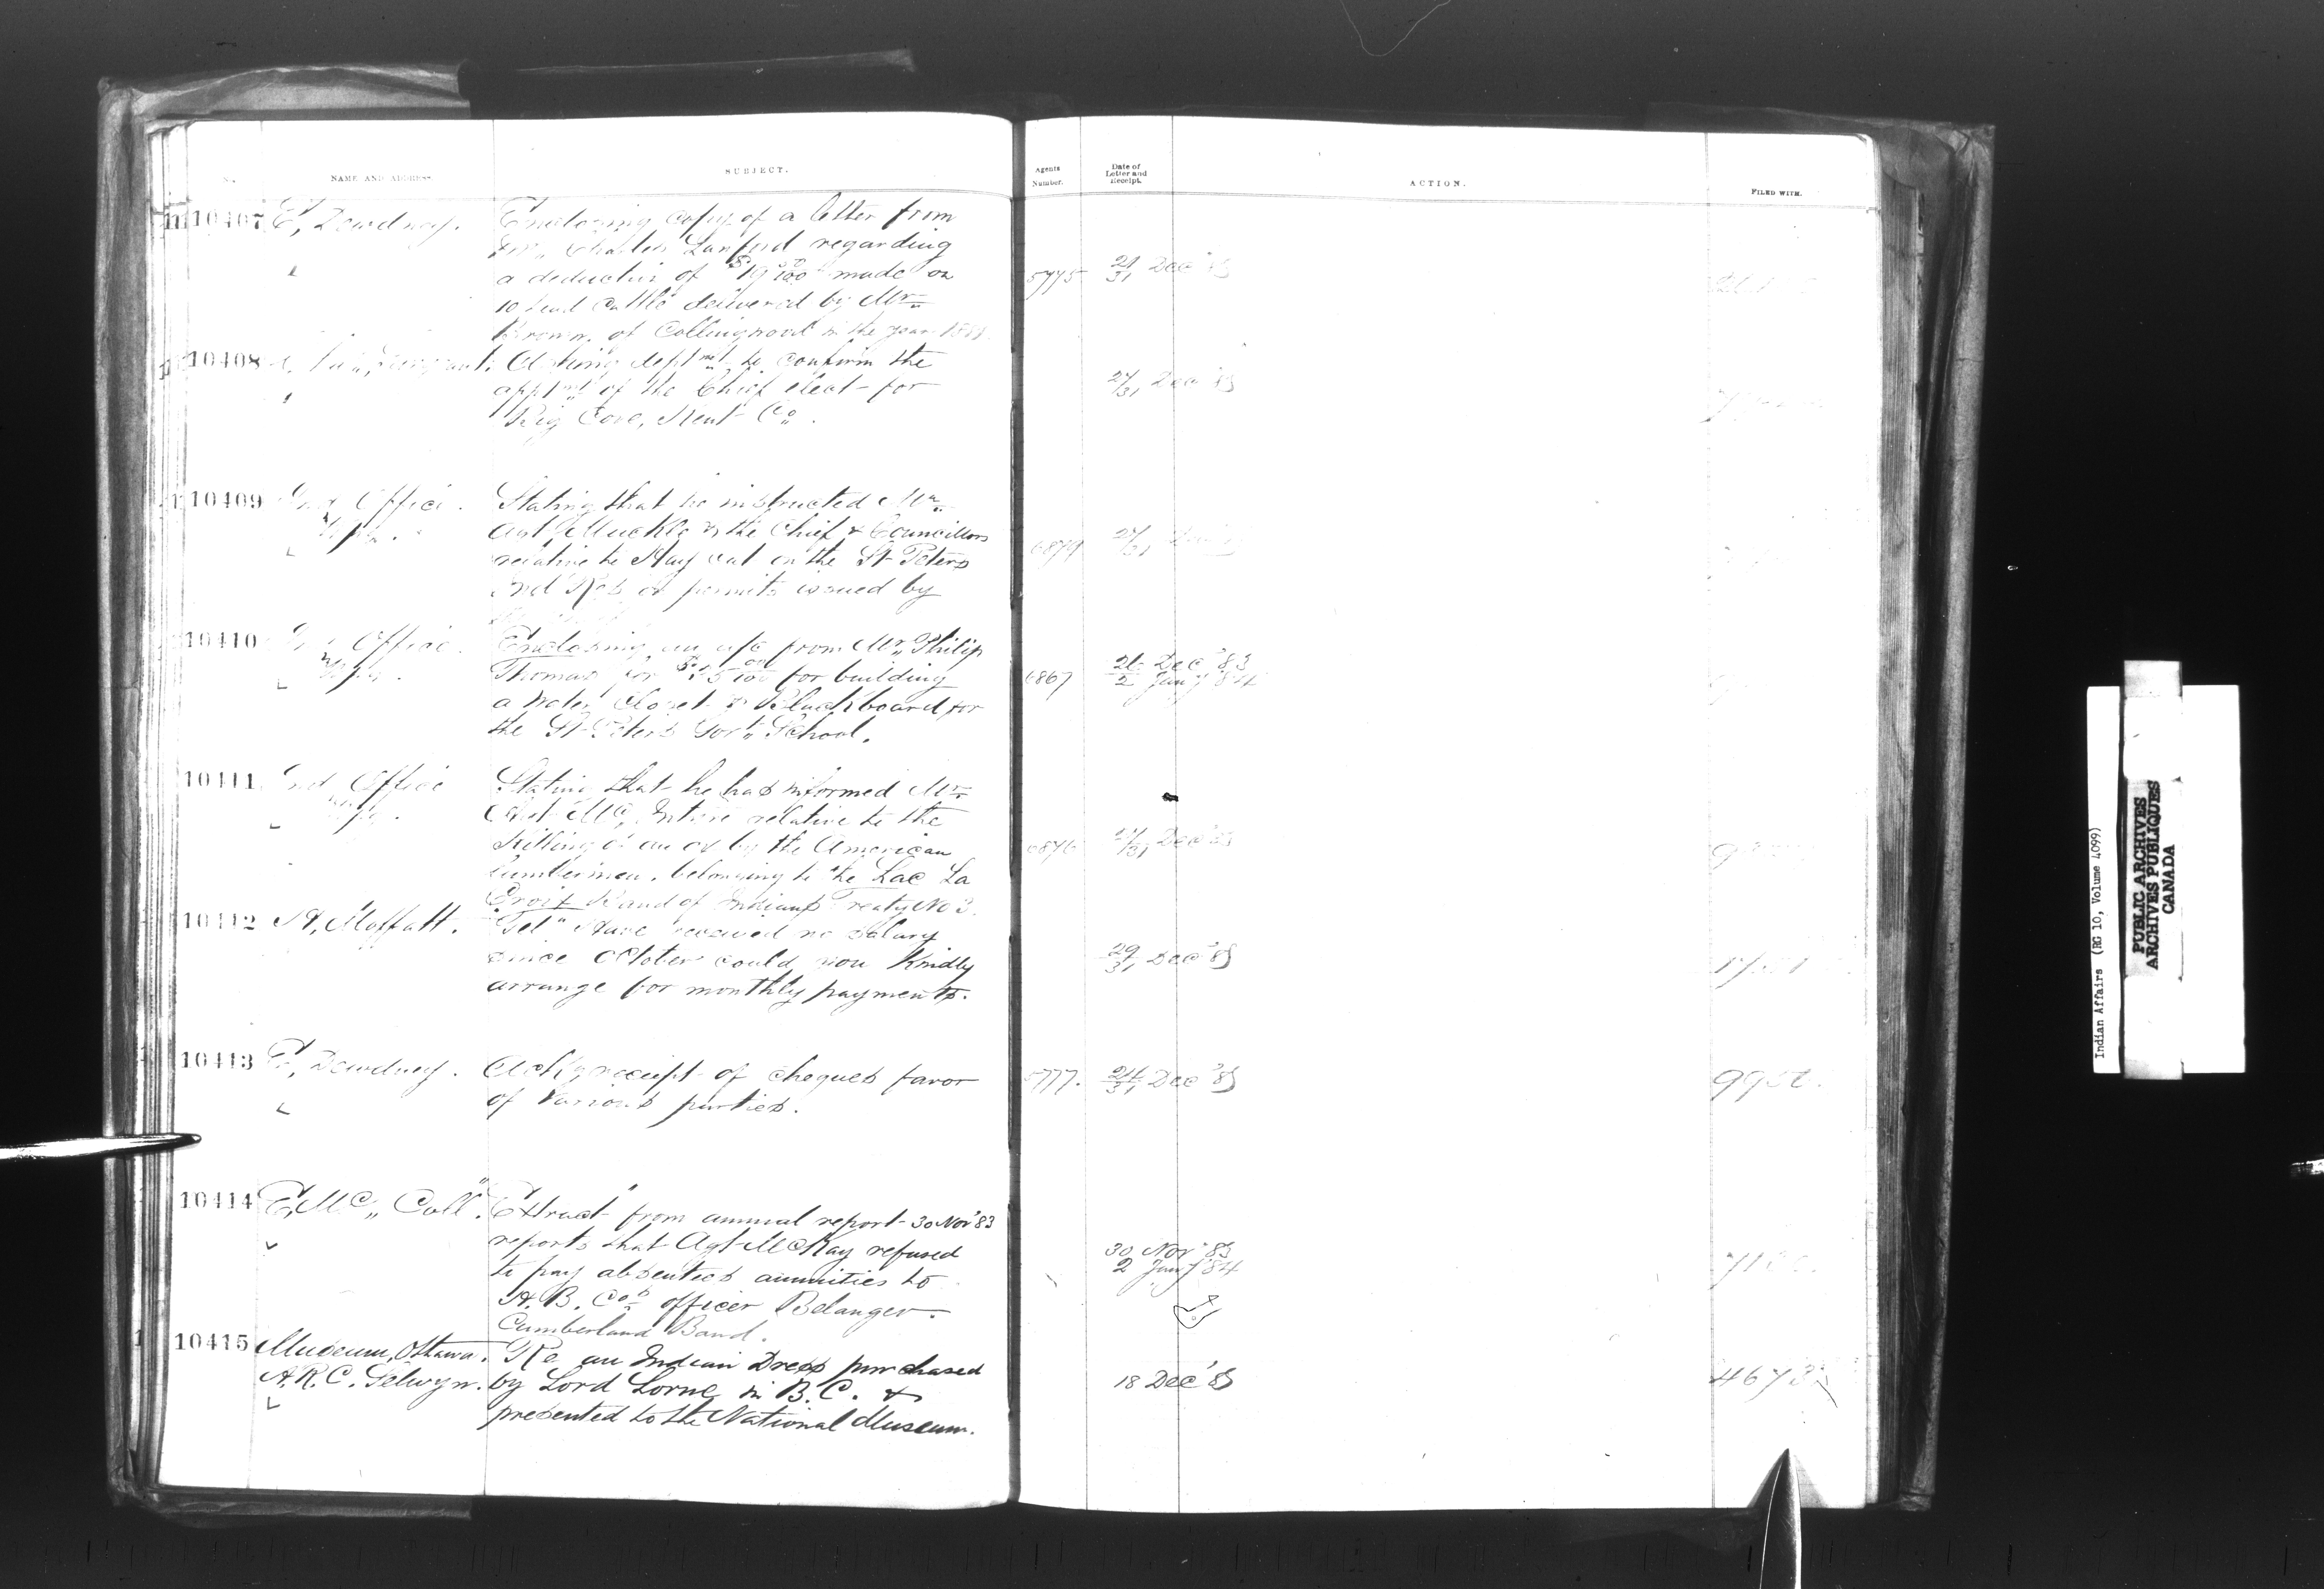 NAME AND ADDRESS.
SUBJECT.
Agents
Number.
Date of
Letter and
Receipt.
ACTION.
FILED WITH.
10407 E, Dewdney. Enclosing Copy of a letter from
Mr Charles regarding
a deduction of $19 made on
10 head Cattle delivered by Mr
Brown of Collingwood in the year
5775 Dec
10408 Asking deptmt to confirm the
apptmt of the Chief elect for
Big Cove, Kent Co.
Dec
10409 Ind Office. Stating that he instructed Mr
Agt Muckle & the Chief & Councillors
relative to Hay cut on the St Peters
Ind Res on permits issued by
6879
10410 Office. Enclosing an a/c from Mr Philip
Thomas for for building
a water Closet & Blackboard for
the St Peters Govt School.
6867 26 Dec '83
2 Jany '84
10411 Ind Office Stating that he has informed Mr
Agt McIntyre relative to the
Killing of an ox by the American
Lumbermen, belonging to the Lac La
Croix Band of Indians Treaty No 3.
Dec
10412 Moffatt. "Tel" Have received no salary
since October could you Kindly
arrange for monthly payments.
29/31 Dec '83
10413 E, Dewdney. Ackg receipt of cheques favor
of various parties.
5777. Dec '83
10414 E, Mc Coll. "Extract" from annual report 30 Nov '83
reports that Agt McKay refused
to pay absentees annuities to
H. B. Cos officer Belanger.
Cumberland Band.
30 Nov '83
2 Jany '84
10415 Museum, Ottawa. Re an Indian Dress purchased
A.R.C. Selwyn. by Lord Lorne in B.C. &
presented to the National Museum.
18 Dec '83
Indian Affairs (RG 10, Volume 4099)
PUBLIC ARCHIVES
ARCHIVES PUBLIQUES
CANADA